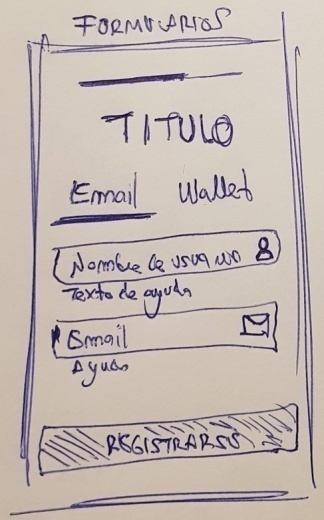 FORMULARIOS
TITULO
Email Wallet
Nombre de usuario
Texto de ayuda
Email
Ayuda
REGISTRARSE